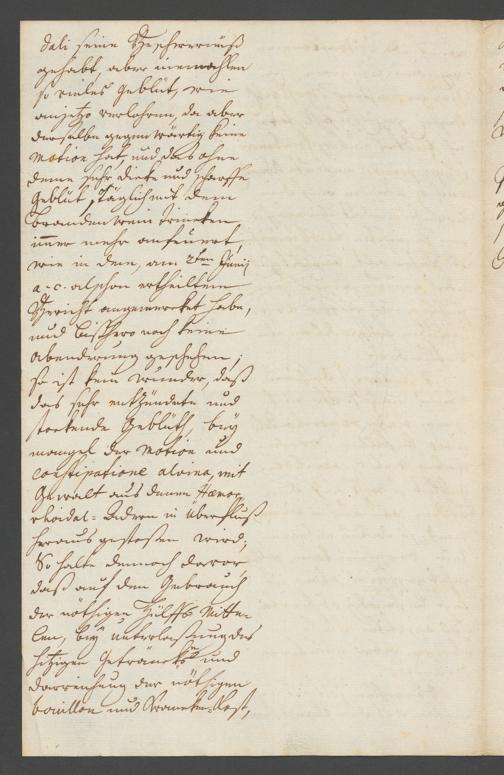 dali seine Beschwernuß
gehabt, aber niemahlen
so vieles Geblüt, wie
anjetzo verlohren, da aber
derselbe gegenwärtig keine
Motion hat, und das ohne
deme sehr dicke und scharffe
Geblüt, täglich mit dem
Brandenwein trincken
immer mehr anfeuert,
wie in dem, am 2ten Junij
a. c. alschon ertheiltem
Bericht angemercket habe,
und bißhero noch keine
abenderung geschehen;
so ist kein wunder, daß
das sehr entzündete und
stockende Geblüth, bey
mangel der Motion und
constipatione alvina, mit
Gewalt aus denen Hæmor-
rhoidal-Adern in Überfluß
heraus gestoßen wird;
So halte demnach davor
daß auf den Gebrauch
der nöthigen Hülffs Mitte-
len, bey unterlaßung des
hitzigen Geträncks und
darreichung der nöthigen
bouillon und Krancken-Kost,